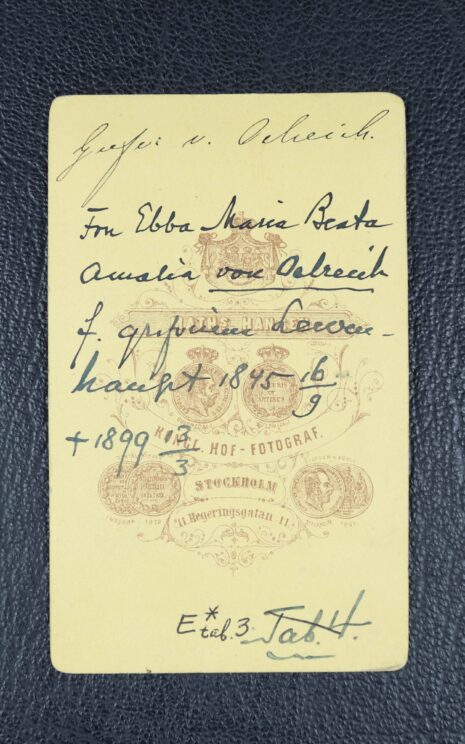 v. Oelreich.
Fru Ebba Maria Beata
Amalia von Oelreich
f. grefvinna Lewen-
haupt 1845 16/9
+ 1899 13/3
GÖSTHE HANSEN
KONGL. HOF-FOTOGRAF.
STOCKHOLM
11 Regeringsgatan 11.
E* tab. 3. Tab. 4.